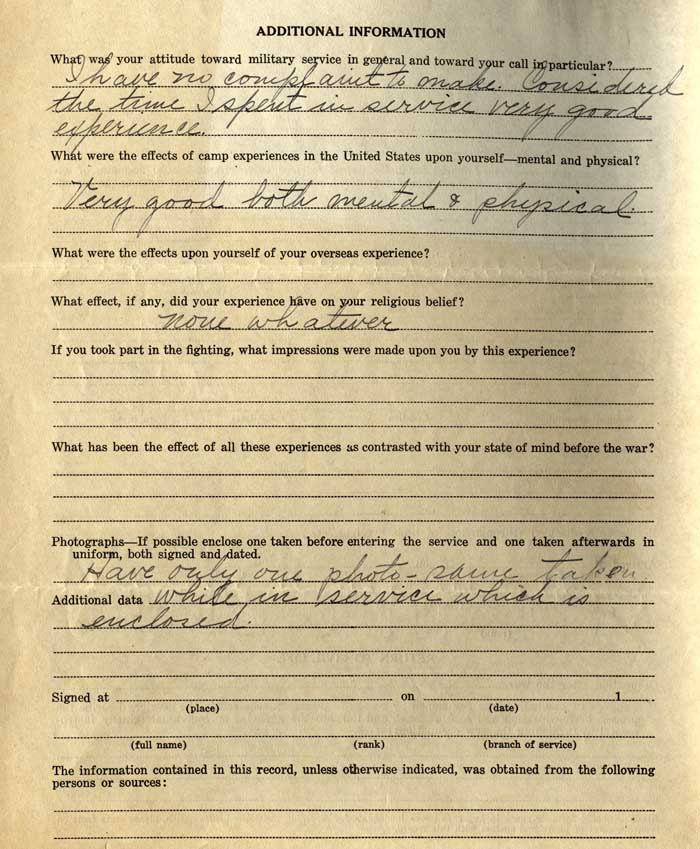 ADDITIONAL INFORMATION
What was your attitude toward military service in general and toward your call in particular?
I have no complaint to make. Considered
the time I spent in service very good
experience.
What were the effects of camp experiences in the United States upon yourself—mental and physical?
Very good both mental & physical.
What were the effects upon yourself of your overseas experience?
What effect, if any, did your experience have on your religious belief?
none whatever
If you took part in the fighting, what impressions were made upon you by this experience?
What has been the effect of all these experiences as contrasted with your state of mind before the war?
Photographs—If possible enclose one taken before entering the service and one taken afterwards in
uniform, both signed and dated.
Have only one photo - same taken
Additional data while in service which is
enclosed.
Signed at on 1
(place) (date)
(full name) (rank) (branch of service)
The information contained in this record, unless otherwise indicated, was obtained from the following
persons or sources: